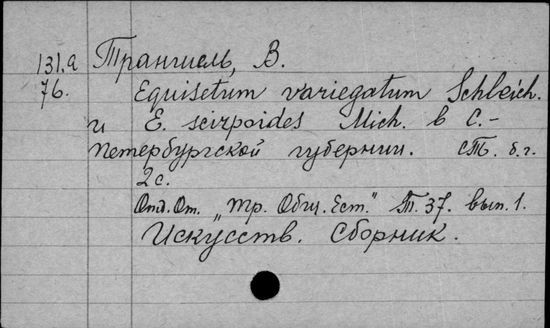 131.а Трангиель, В.
76. Equisetum variegatum Schleich.
и E. scirpoides Mich. в С.-
петербургской губернии. СПб. б.г.
2с.
Отд. От. "Тр. Общ. Ест." Т. 37. вып. 1.
Искусств. сборник.